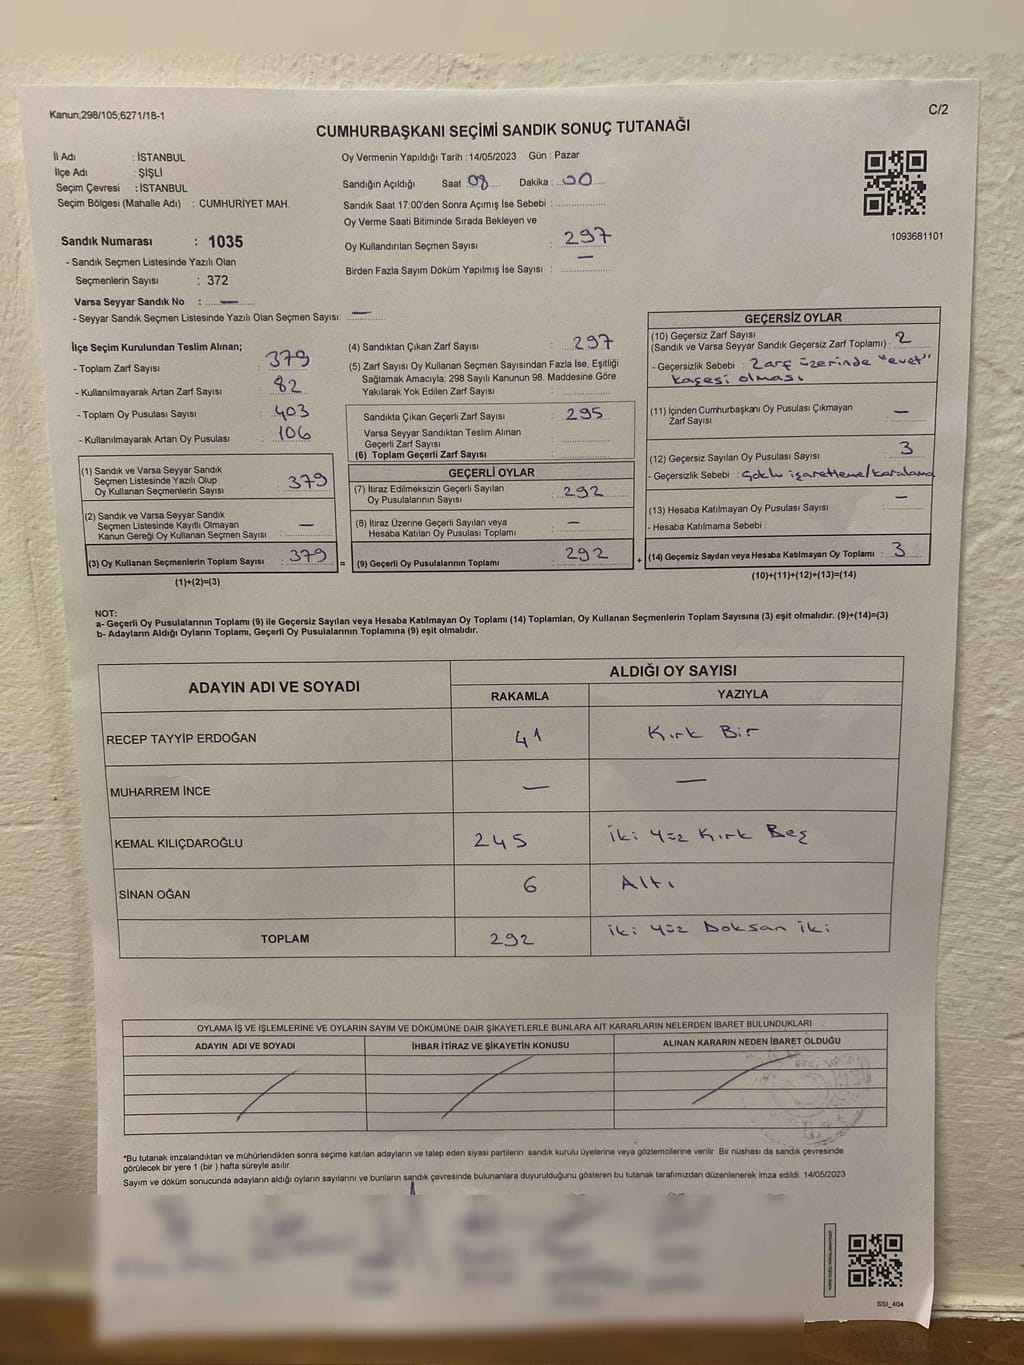 Kanun;298/105;6271/18-1
C/2
CUMHURBAŞKANI SEÇİMİ SANDIK SONUÇ TUTANAĞI
İl Adı : İSTANBUL
İlçe Adı : ŞİŞLİ
Seçim Çevresi : İSTANBUL
Seçim Bölgesi (Mahalle Adı) : CUMHURİYET MAH.
Sandık Numarası : 1035
- Sandık Seçmen Listesinde Yazılı Olan
Seçmenlerin Sayısı : 372
Varsa Seyyar Sandık No : —
- Seyyar Sandık Seçmen Listesinde Yazılı Olan Seçmen Sayısı: —
Oy Vermenin Yapıldığı Tarih :14/05/2023 Gün : Pazar
Sandığın Açıldığı Saat 08 Dakika : 00
Sandık Saat 17:00'den Sonra Açımış İse Sebebi :
Oy Verme Saati Bitiminde Sırada Bekleyen ve
Oy Kullandırılan Seçmen Sayısı : 297
Birden Fazla Sayım Döküm Yapılmış İse Sayısı : —
1093681101
İlçe Seçim Kurulundan Teslim Alınan;
- Toplam Zarf Sayısı : 379
- Kullanılmayarak Artan Zarf Sayısı : 82
- Toplam Oy Pusulası Sayısı : 403
- Kullanılmayarak Artan Oy Pusulası : 106
(1) Sandık ve Varsa Seyyar Sandık
Seçmen Listesinde Yazılı Olup
Oy Kullanan Seçmenlerin Sayısı : 379
(2) Sandık ve Varsa Seyyar Sandık
Seçmen Listesinde Kayıtlı Olmayan
Kanun Gereği Oy Kullanan Seçmen Sayısı : —
(3) Oy Kullanan Seçmenlerin Toplam Sayısı : 379 =
(1)+(2)=(3)
(4) Sandıktan Çıkan Zarf Sayısı : 297
(5) Zarf Sayısı Oy Kullanan Seçmen Sayısından Fazla İse, Eşitliği
Sağlamak Amacıyla; 298 Sayılı Kanunun 98. Maddesine Göre
Yakılarak Yok Edilen Zarf Sayısı :
Sandıkta Çıkan Geçerli Zarf Sayısı : 295
Varsa Seyyar Sandıktan Teslim Alınan
Geçerli Zarf Sayısı :
(6) Toplam Geçerli Zarf Sayısı :
GEÇERLİ OYLAR
(7) İtiraz Edilmeksizin Geçerli Sayılan
Oy Pusulalarının Sayısı : 292
(8) İtiraz Üzerine Geçerli Sayılan veya
Hesaba Katılan Oy Pusulası Toplamı : —
(9) Geçerli Oy Pusulalarının Toplamı : 292 +
GEÇERSİZ OYLAR
(10) Geçersiz Zarf Sayısı
(Sandık ve Varsa Seyyar Sandık Geçersiz Zarf Toplamı) : 2
- Geçersizlik Sebebi : Zarf üzerinde "evet"
kaşesi olması
(11) İçinden Cumhurbaşkanı Oy Pusulası Çıkmayan
Zarf Sayısı : —
(12) Geçersiz Sayılan Oy Pusulası Sayısı : 3
- Geçersizlik Sebebi : Çoklu işaretleme/karalama
(13) Hesaba Katılmayan Oy Pusulası Sayısı : —
- Hesaba Katılmama Sebebi :
(14) Geçersiz Sayılan veya Hesaba Katılmayan Oy Toplamı : 3
(10)+(11)+(12)+(13)=(14)
NOT:
a- Geçerli Oy Pusulalarının Toplamı (9) ile Geçersiz Sayılan veya Hesaba Katılmayan Oy Toplamı (14) Toplamları, Oy Kullanan Seçmenlerin Toplam Sayısına (3) eşit olmalıdır. (9)+(14)=(3)
b- Adayların Aldığı Oyların Toplamı, Geçerli Oy Pusulalarının Toplamına (9) eşit olmalıdır.
ADAYIN ADI VE SOYADI
ALDIĞI OY SAYISI
RAKAMLA YAZIYLA
RECEP TAYYİP ERDOĞAN 41 Kırk Bir
MUHARREM İNCE — —
KEMAL KILIÇDAROĞLU 245 İki yüz Kırk Beş
SİNAN OĞAN 6 Altı
TOPLAM 292 İki yüz Doksan İki
OYLAMA İŞ VE İŞLEMLERİNE VE OYLARIN SAYIM VE DÖKÜMÜNE DAİR ŞİKAYETLERLE BUNLARA AİT KARARLARIN NELERDEN İBARET BULUNDUKLARI
ADAYIN ADI VE SOYADI İHBAR İTİRAZ VE ŞİKAYETİN KONUSU ALINAN KARARIN NEDEN İBARET OLDUĞU
*Bu tutanak imzalandıktan ve mühürlendikten sonra seçime katılan adayların ve talep eden siyasi partilerin sandık kurulu üyelerine veya gözlemcilerine verilir. Bir nüshası da sandık çevresinde
görülecek bir yere 1 (bir ) hafta süreyle asılır.
Sayım ve döküm sonucunda adayların aldığı oyların sayılarını ve bunların sandık çevresinde bulunanlara duyurulduğunu gösteren bu tutanak tarafımızdan düzenlenerek imza edildi. 14/05/2023
SSI_404